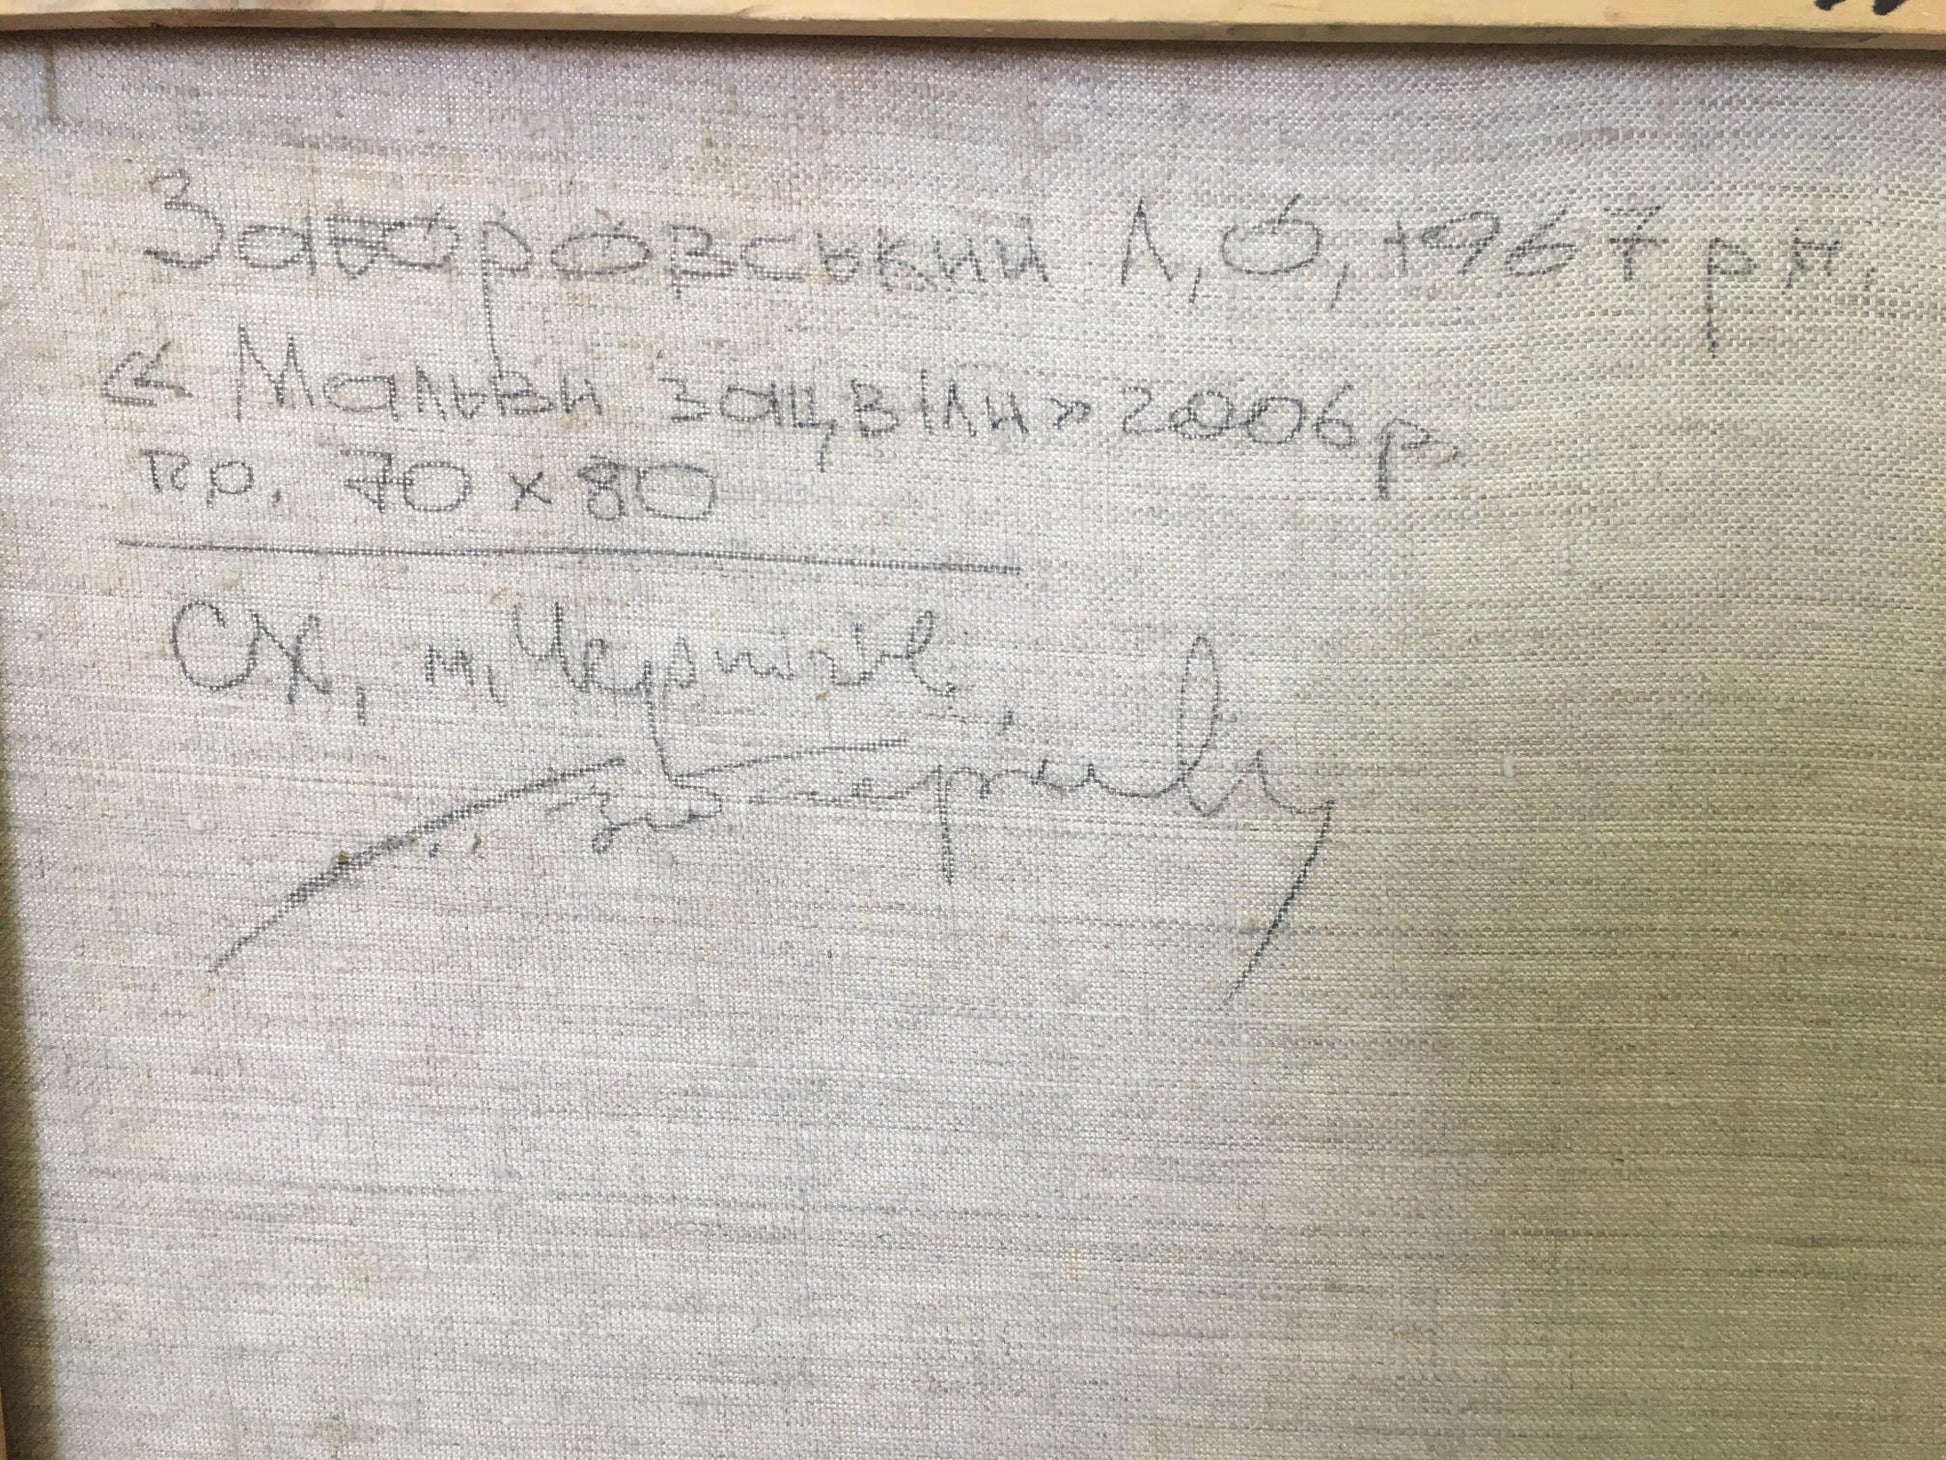 Заборовський Л, О, 1967 рн.
« Мальви зацвіли » 2006р.
пр. 70 x 80
СХ, м, Чернігів,